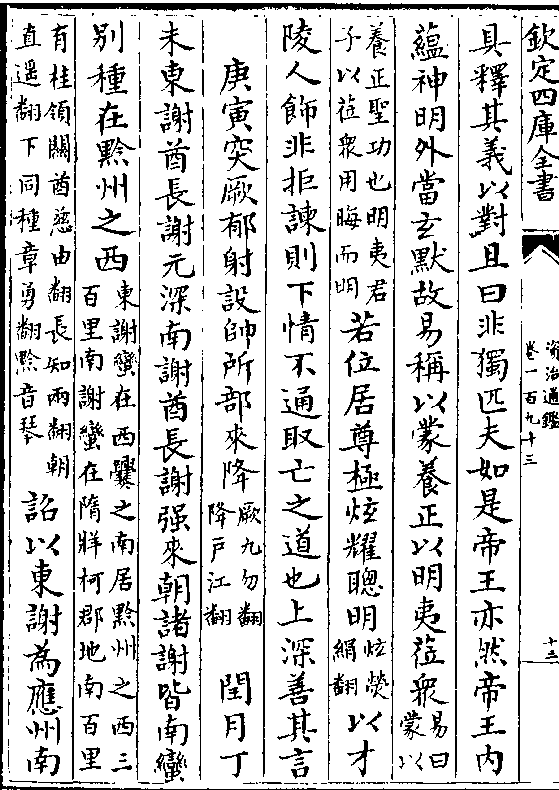 欽定四庫全書
資治通鑑
卷一百九十三
十三
具釋其義以對且曰非獨匹夫如是帝王亦然帝王内
蘊神明外當玄默故易稱以蒙養正以明夷莅衆易曰蒙以
養正聖功也明夷君子以莅衆用晦而明若位居尊極炫耀聰明炫熒絹翻以才
陵人飾非拒諫則下情不通取亡之道也上深善其言
庚寅突厥郁射設帥所部來降厥九勿翻降戸江翻閏月丁
未東謝酋長謝元深南謝酋長謝强來朝諸謝皆南蠻
别種在黔州之西東謝蠻在西爨之南居黔州之西三百里南謝蠻在隋牂柯郡地南百里
有桂領關酋慈由翻長知兩翻朝直遥翻下同種章勇翻黔音琴詔以東謝為應州南